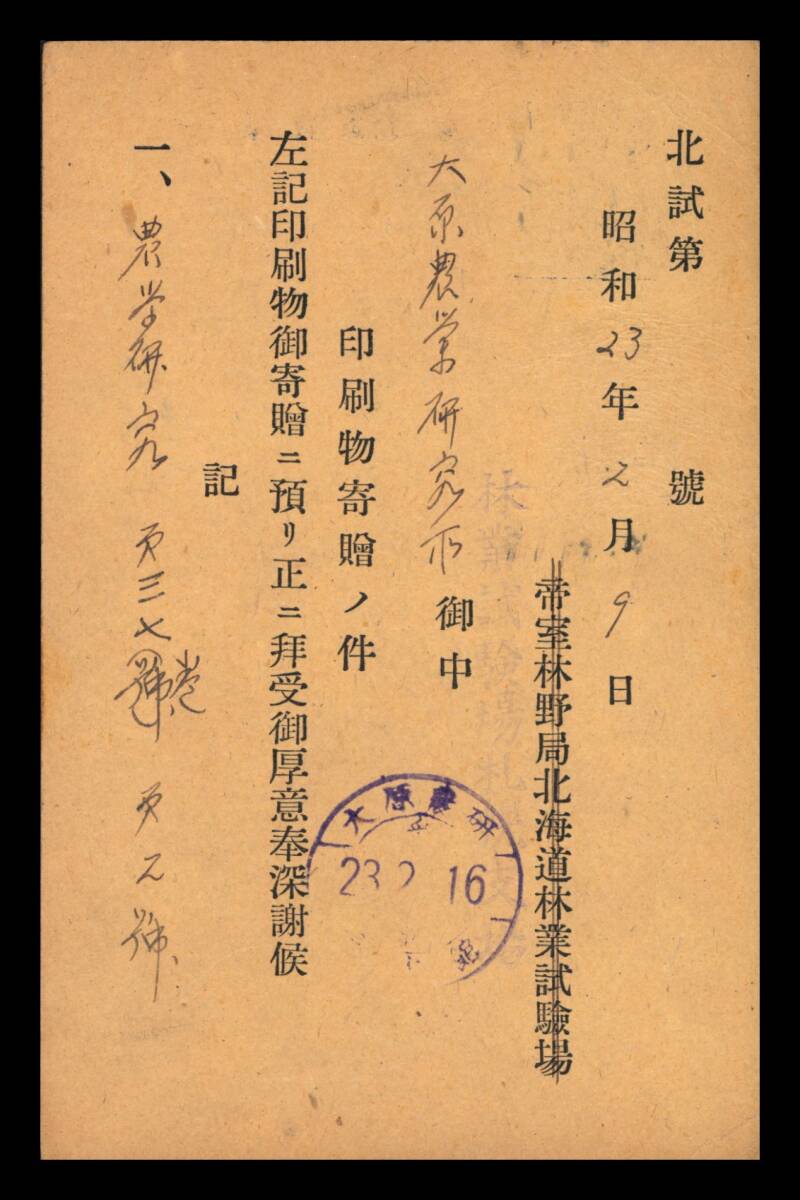 北試第 號
昭和23年2月9日
帝室林野局北海道林業試驗場
林業試驗場札幌支場
大原農業研究所御中
印刷物寄贈ノ件
左記印刷物御寄贈ニ預リ正ニ拜受御厚意奉深謝候
記
一、農学研究 第三七巻 第二號
大原農研
23 2 16